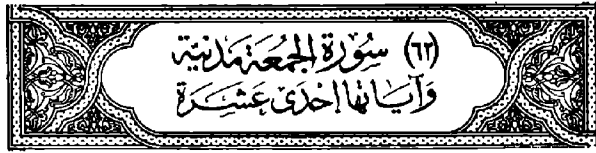 (٦٢) سُورَة الجُمعَة مَدنيَّة
وَآيَاتهَا إحْدَى عَشِرَة